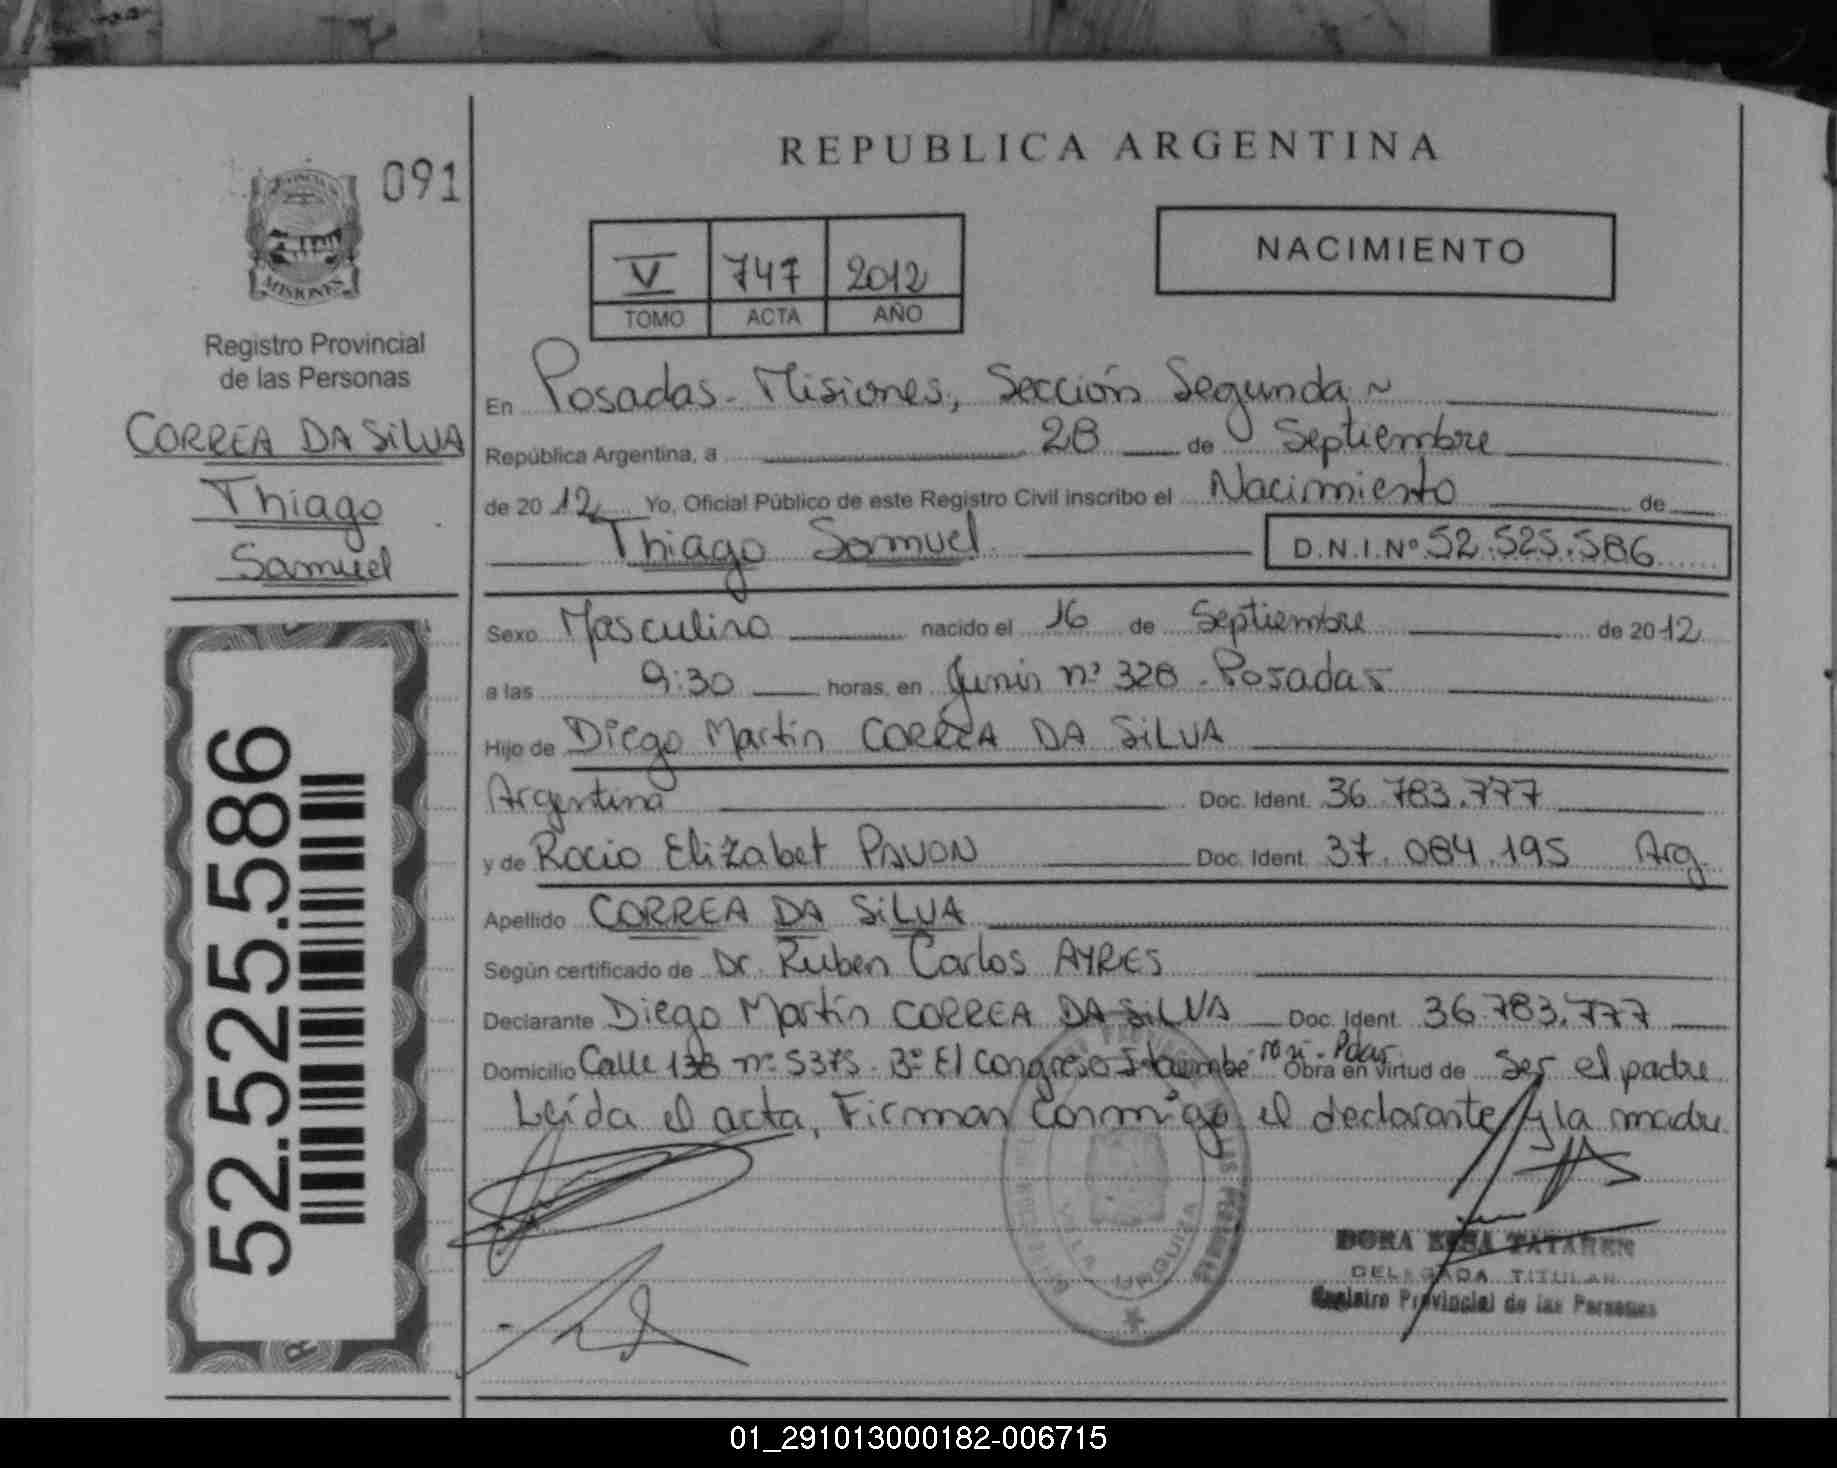 REPUBLICA ARGENTINA
091
NACIMIENTO
V 747 2012
TOMO ACTA AÑO
MISIONES
Registro Provincial
de las Personas
CORREA DA SILVA
Thiago
Samuel
52.525.586
En Posadas - Misiones, Sección Segunda ~
República Argentina, a 28 de Septiembre
de 2012 Yo, Oficial Público de este Registro Civil inscribo el Nacimiento de
Thiago Samuel D.N.I.Nº 52.525.586
Sexo Masculino nacido el 16 de Septiembre de 2012
a las 9:30 horas, en Junin nº 328 - Posadas
Hijo de Diego Martin CORREA DA SILVA
Argentina Doc. Ident. 36.783.777
y de Rocio Elizabet PAVON Doc. Ident. 37.084.195 Arg.
Apellido CORREA DA SILVA
Según certificado de Dr. Ruben Carlos AYRES
Declarante Diego Martin CORREA DA SILVA Doc. Ident. 36.783.777
Domicilio Calle 138 nº 5375 - Bº El Congreso Itaembé Mini - Pdas. Obra en virtud de Ser el padre
Leída el acta, Firman conmigo el declarante y la madre
VILLA URQUIZA
DORA ELSA TATAREN
DELEGADA TITULAR
Registro Provincial de las Personas
01_291013000182-006715